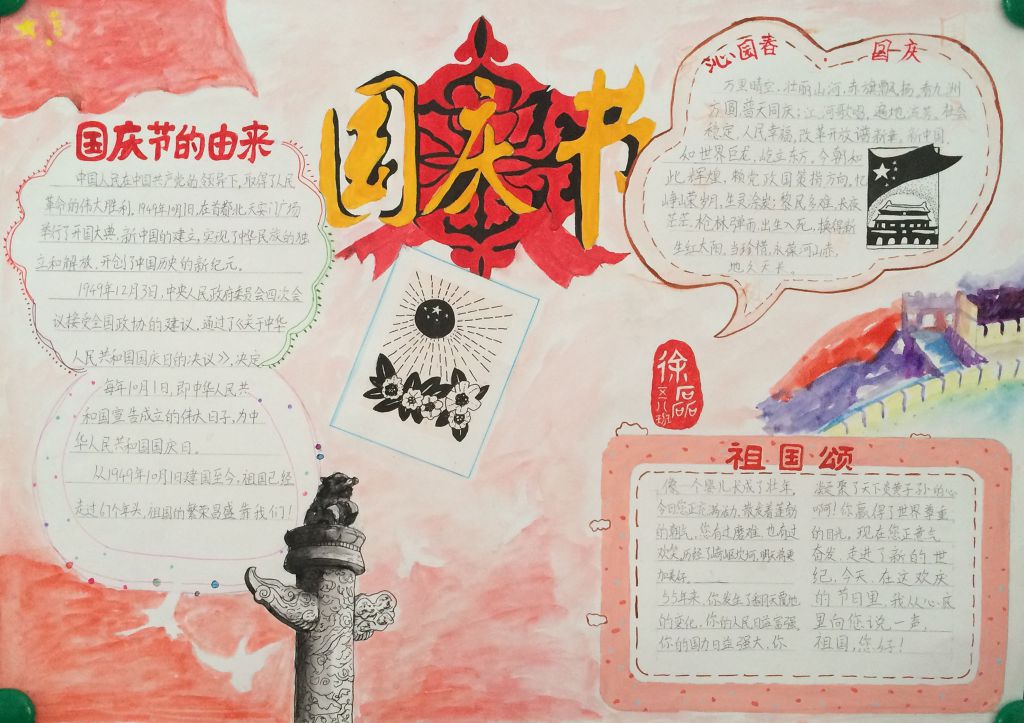 国庆节
国庆节的由来
中国人民在中国共产党的领导下,取得了人民
革命的伟大胜利。1949年10月1日,在首都北京天安门广场
举行了开国大典,新中国的建立,实现了中华民族的独
立和解放,开创了中国历史的新纪元。
1949年12月3日,中央人民政府委员会四次会
议接受全国政协的建议,通过了《关于中华
人民共和国国庆日的决议》,决定
每年10月1日,即中华人民共
和国宣告成立的伟大日子,为中
华人民共和国国庆日。
从1949年10月1日建国至今,祖国已经
走过61个年头,祖国的繁荣昌盛靠我们!
沁园春·国庆
万里晴空,壮丽山河,赤旗飘扬,看九州
方圆,普天同庆;江河歌唱,遍地流芳,社会
稳定,人民幸福,改革开放谱新章,新中国
如世界巨龙,屹立东方,今朝如
此辉煌,赖党政国策指方向,忆
峥嵘岁月,生灵涂炭;黎民多难,长夜
茫茫,枪林弹雨,出生入死,换得新
生红太阳,当珍惜,永葆河山赤,
地久天长。
徐磊
五八班
祖国颂
像一个婴儿长成了壮年,
今日您正充满活力,散发着蓬勃
的朝气,您有过磨难,也有过
欢笑,历经了崎岖坎坷,明天将更
加美好。
55年来,你发生了翻天覆地
的变化,你的人民日益富强,
你的国力日益强大,你
凝聚了天下炎黄子孙的心
啊!你赢得了世界尊重
的目光,现在您正意气
奋发,走进了新的世
纪,今天,在这欢庆
的节日里,我从心底
里向您说一声,
祖国,您好!